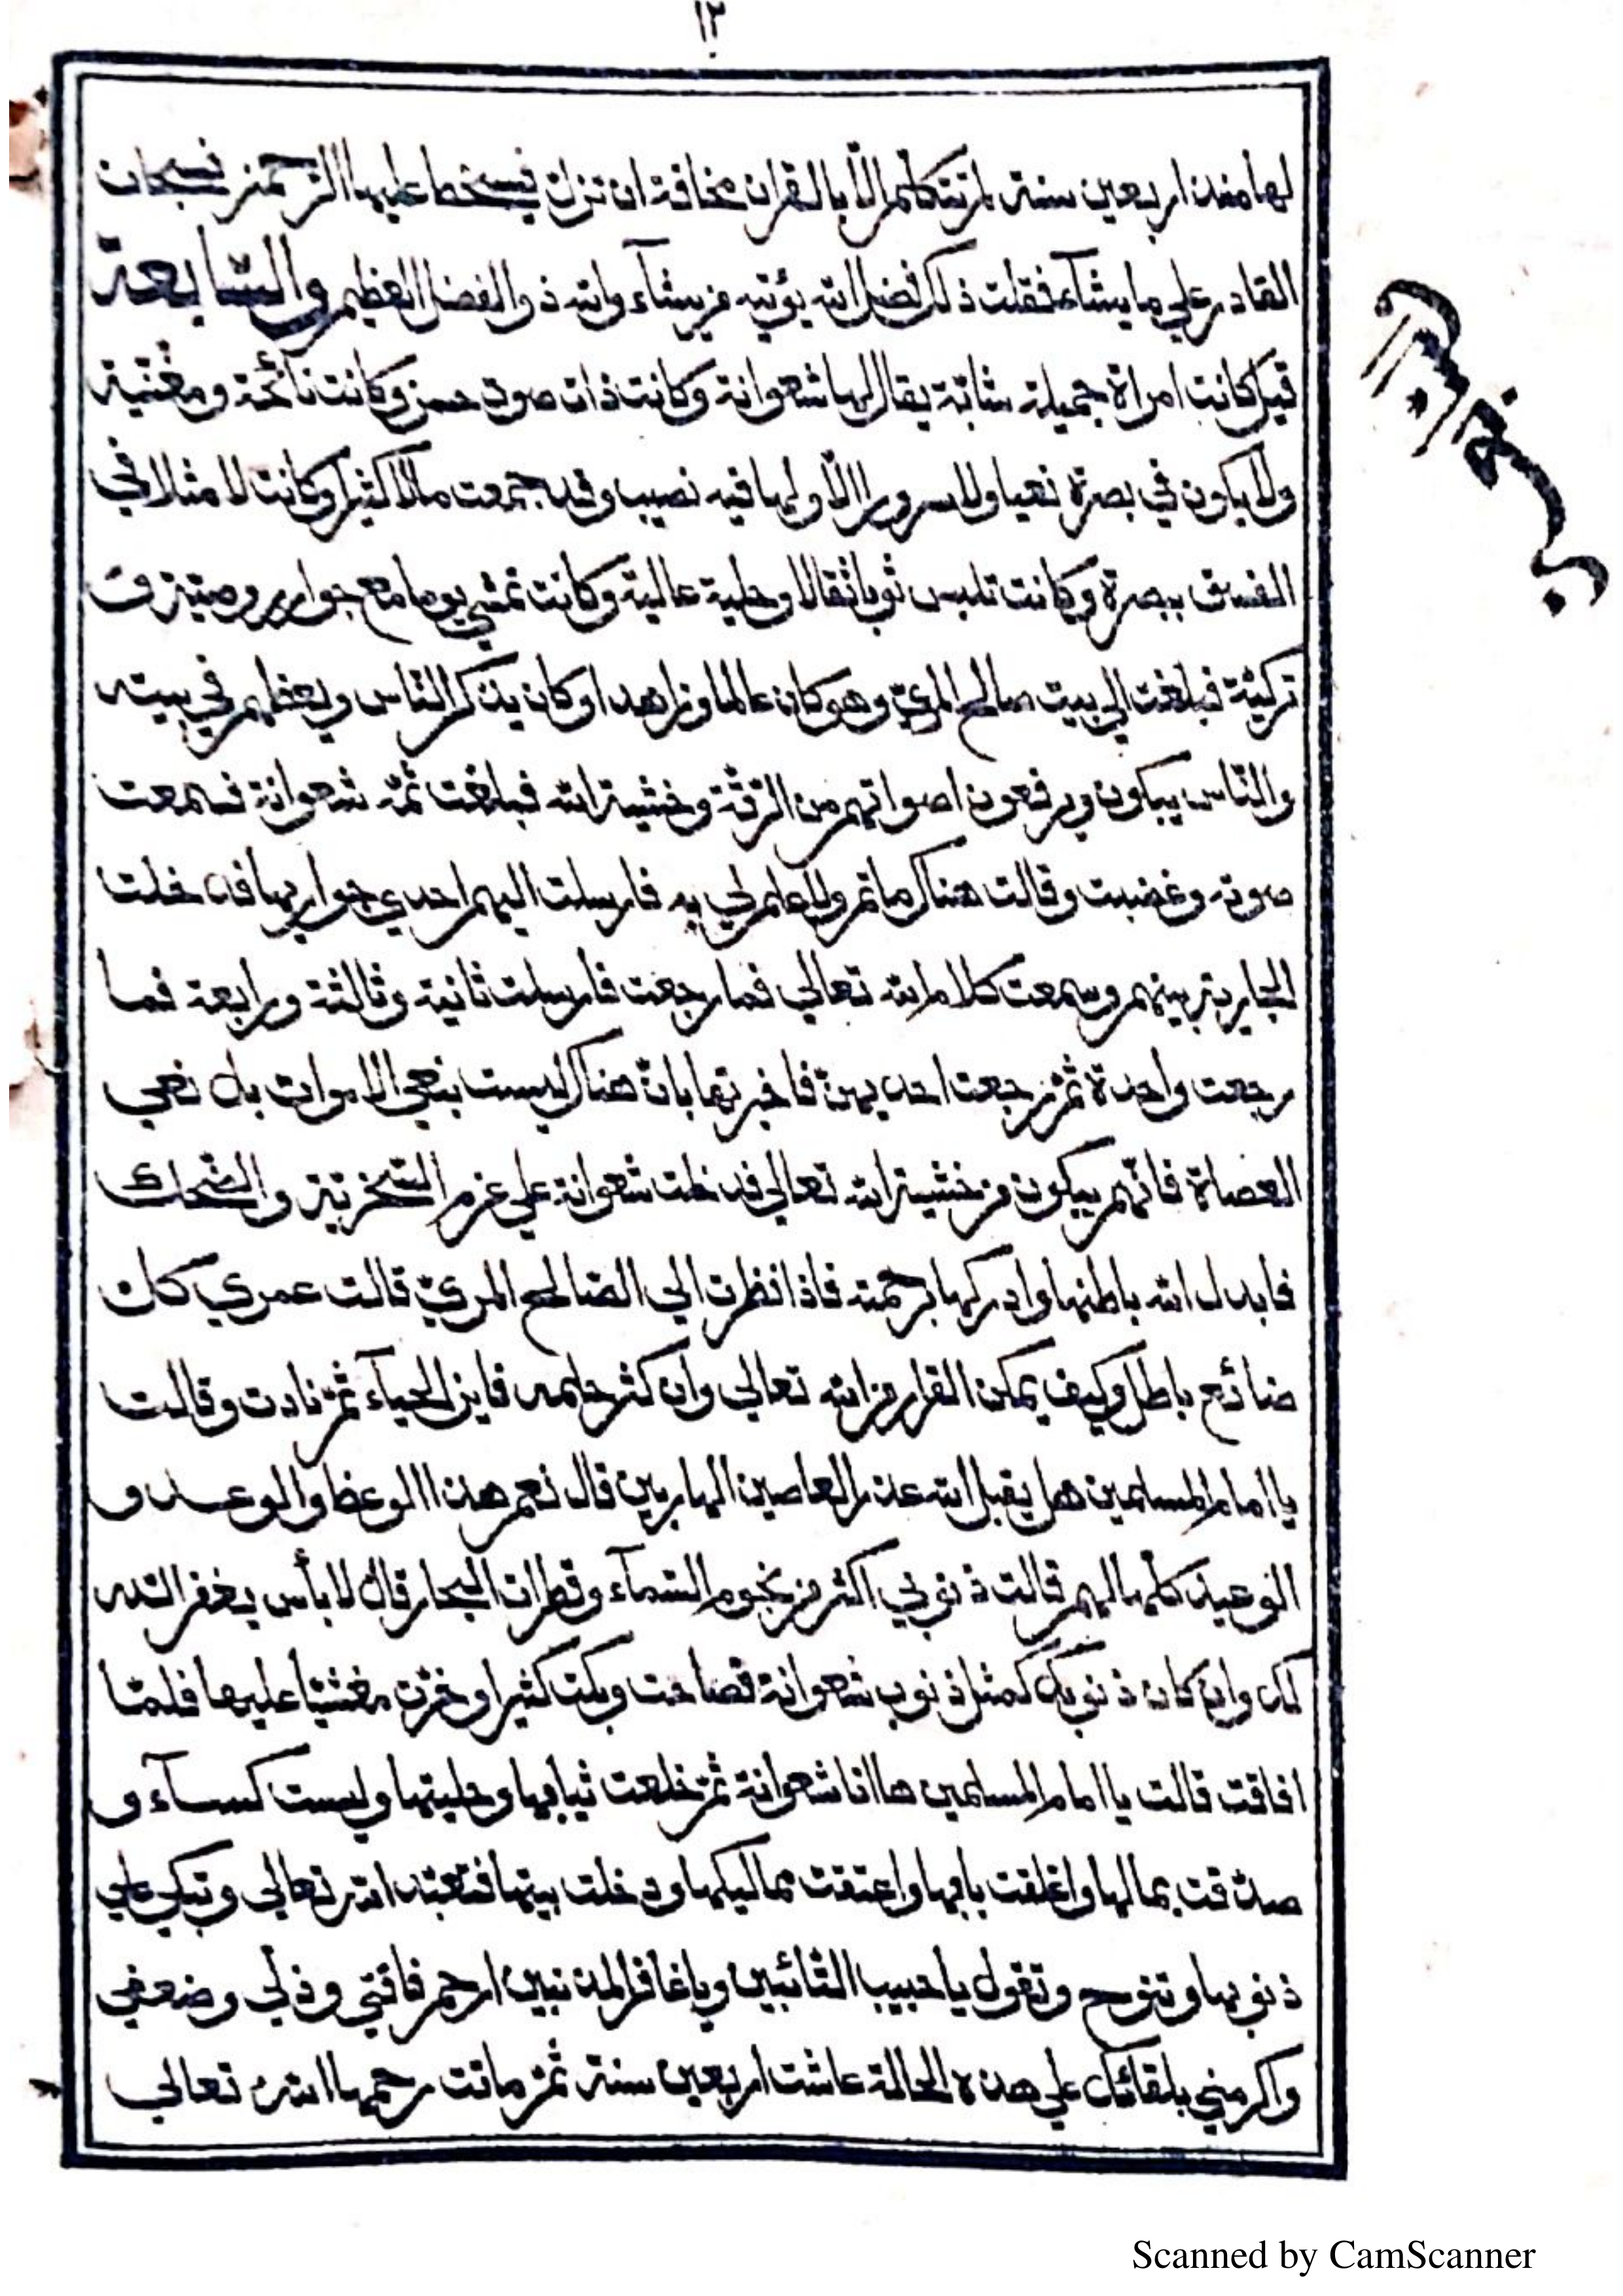 ١٢
لها منذ اربعين سنة لم تتكلم الّا بالقران مخافة ان تزل فيسخط عليها الرّحمن فسبحان
القادر علي ما يشآء فقلت ذلك فضل الله يؤتيه من يشآء والله ذو الفضل العظيم والسّابعة
قيل كانت امراة جميلة شابّة يقال لها شعوانة وكانت ذات صوت حسن وكانت نائحة ومغنّية
ولا يكون في بصرة نعيا ولا سرورا الّا ولها فيه نصيب وقد جمعت مالا كثيرا وكانت لا مثلا في
الفسق ببصرة وكانت تلبس ثوبا ثقالا وحلية عالية وكانت تمشي يوما مع جوار رومية و
تركيّة فبلغت الي بيت صالح المريّ وهو كان عالما وزاهدا وكان يذكر النّاس ويعظهم في بيته
والنّاس يبكون ويرفعون اصواتهم من الرّقّة وخشية الله فبلغت ثمّه شعوانة فسمعت
صوته وغضبت وقالت هناك ماتم ولا علم لي به فارسلت اليهم احدي جواريها فدخلت
الجارية بينهم وسمعت كلام الله تعالي فما رجعت فارسلت ثانية وثالثة ورابعة فما
رجعت واحدة ثمّ رجعت احديهنّ فاخبرتها بانّ هناك ليست بنعي الاموات بل نعي
العصاة فانّهم يبكون من خشية الله تعالي فدخلت شعوانة علي عزم السّخريّة والضّحك
فابدل الله باطنها وادركها برحمته فاذا نظرت الي الصّالح المريّ قالت عمري كان
ضائع باطل وكيف يمكن الفرار من الله تعالي وان كثر حلمه فاين الحيآء ثمّ نادت وقالت
يا امام المسلمين هل يقبل الله عذر العاصين الهاربين قال نعم هذا الوعظ والوعد و
الوعيد كلّها لهم قالت ذنوبي اكثر من نجوم السّمآء وقطرات البحار قال لا بأس يغفر الله
لك وان كان ذنوبك كمثل ذنوب شعوانة فصاحت وبكت كثيرا وخرّت مغشيّا عليها فلمّا
افاقت قالت يا امام المسلمين ها انا شعوانة ثمّ خلعت ثيابها وحليتها ولبست كسآء و
صدّقت بمالها واغلقت بابها واعتقت مماليكها ودخلت بيتها فتعبّد الله تعالي وتبكي علي
ذنوبها وتنوح وتقول يا حبيب التّائبين ويا غافر المذنبين ارحم فاقتي وذلّي وضعفي
واكرمني بلقائك علي هذه الحالة عاشت اربعين سنة ثمّ ماتت رحمها الله تعالي
Scanned by CamScanner